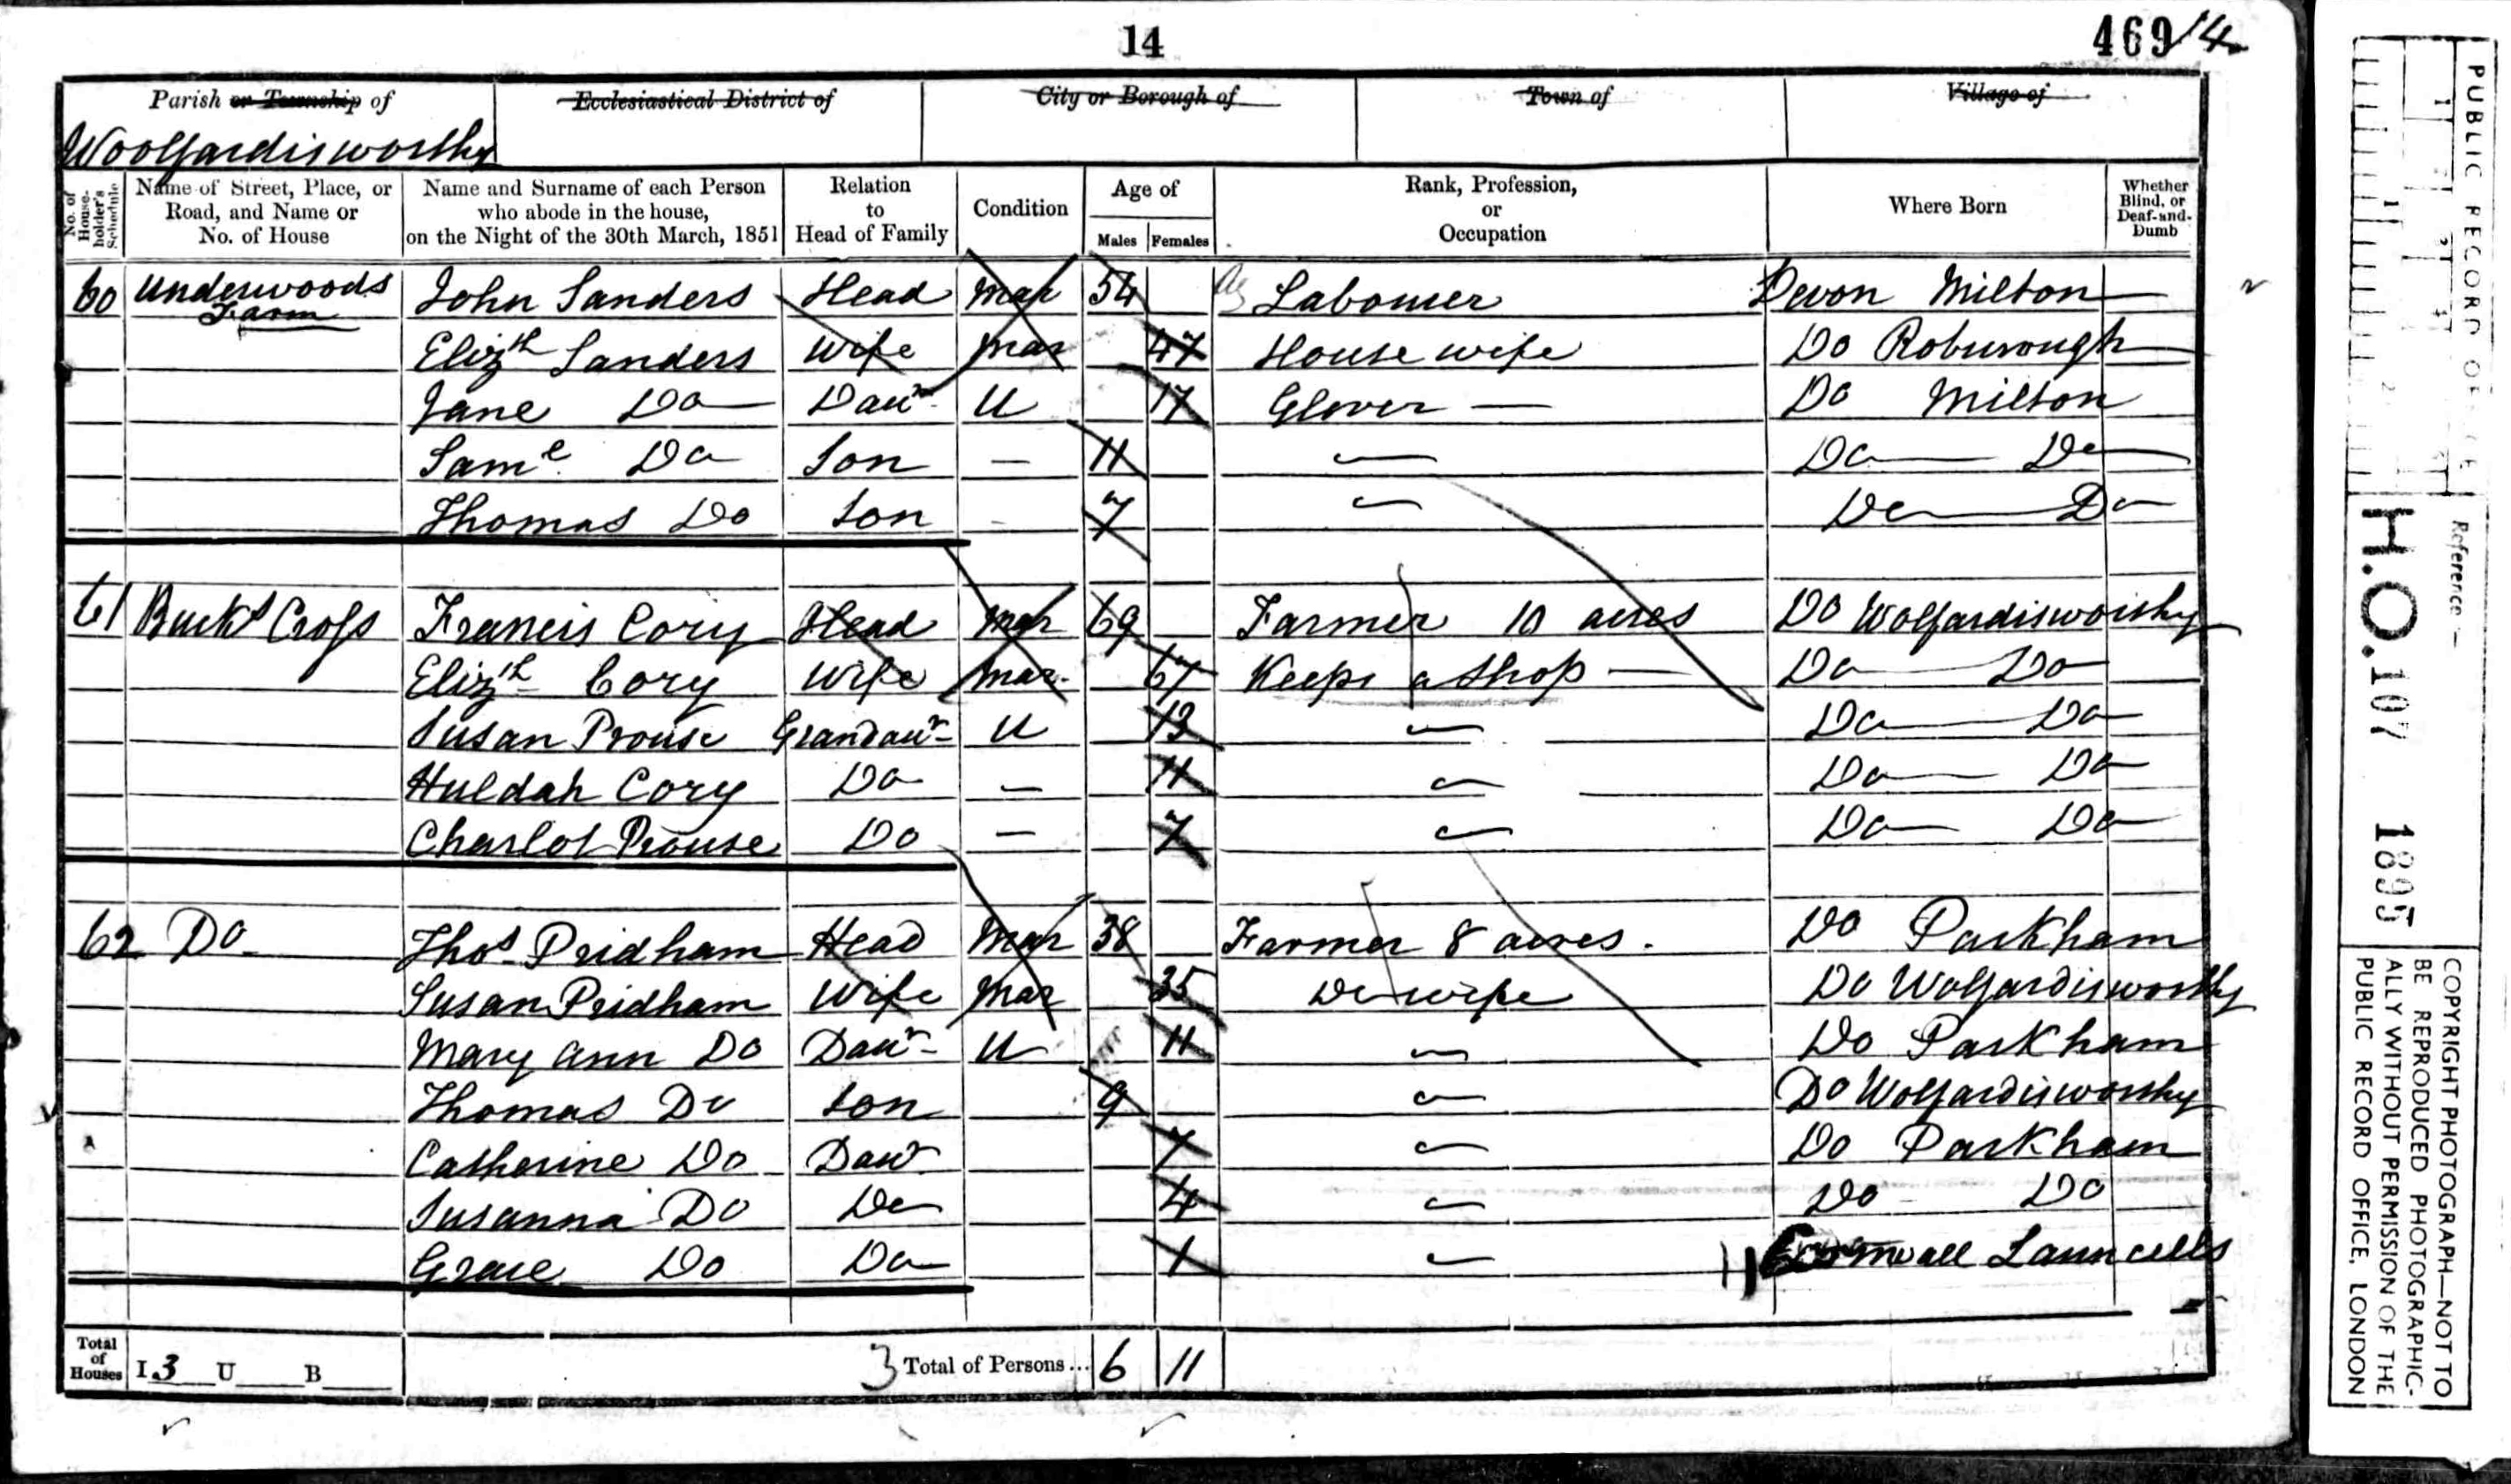 14
469 14
Parish or Township of
Ecclesiastical District of
City or Borough of
Town of
Village of
Woolfardisworthy
No. of House-holder's Schedule
Name of Street, Place, or Road, and Name or No. of House
Name and Surname of each Person who abode in the house, on the Night of the 30th March, 1851
Relation to Head of Family
Condition
Age of
Males Females
Rank, Profession, or Occupation
Where Born
Whether Blind, or Deaf-and-Dumb
60 Underwoods Farm John Sanders Head Mar 54 Ag Labourer Devon Milton
Elizth Sanders Wife Mar 47 House wife Do Roburough
Jane Do Daur U 17 Glover — Do Milton
Saml Do Son — 11 — Do Do
Thomas Do Son - 7 — Do Do
61 Bucks Cross Francis Cory Head Mar 69 Farmer 10 acres Do Wolfardisworthy
Elizth Cory Wife Mar 67 Keeps a Shop — Do Do
Susan Prouse Grandaur U 13 — Do Do
Huldah Cory Do — 11 — Do Do
Charlot Prouse Do — 7 — Do Do
62 Do Thos Pridham Head Mar 38 Farmer 8 acres. Do Parkham
Susan Pridham Wife Mar 35 Do wife Do Wolfardisworthy
Mary Ann Do Daur U 11 — Do Parkham
Thomas Do Son 9 — Do Wolfardisworthy
Catherine Do Daur 7 — Do Parkham
Susanna Do Do 4 — Do Do
Grace Do Do 1 — Cornwall Launcells
Total of Houses I 3 U B 3 Total of Persons... 6 11
PUBLIC RECORD OFFICE
Reference :—
H.O. 107 1895
COPYRIGHT PHOTOGRAPH—NOT TO
BE REPRODUCED PHOTOGRAPHIC-
ALLY WITHOUT PERMISSION OF THE
PUBLIC RECORD OFFICE, LONDON